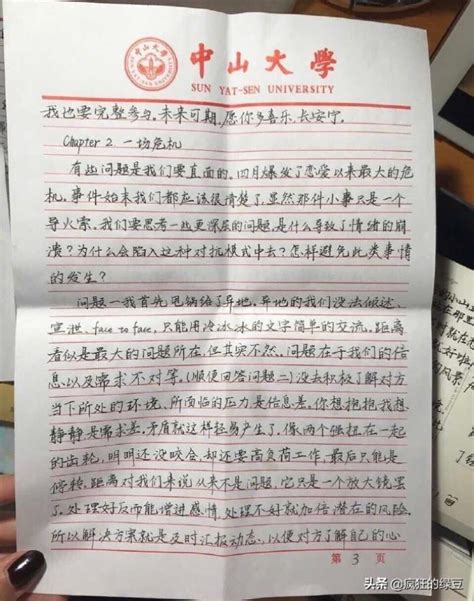 中山大學
SUN YAT-SEN UNIVERSITY
我也要完整参与。未来可期,愿你多喜乐,长安宁。
Chapter 2 一场危机
有些问题是我们要直面的。四月爆发了恋爱以来最大的危
机。事件始末我们都应该很清楚了,显然那件小事只是一个
导火索。我们要思考一些更深层的问题,是什么导致了情绪的崩
溃?为什么会陷入这种对抗模式中去?怎样避免此类事情
的发生?
问题一我首先甩锅给了异地。异地的我们没法倾述、
宣泄、face to face,只能用冷冰冰的文字简单的交流。距离
看似是最大的问题所在,但其实不然,问题在于我们的信
息、以及需求不对等。(顺便回答问题二)没去积极了解对方
当下所处的环境、所面临的压力是信息差。你想抱抱我想
静静是需求差。矛盾就这样轻易产生了。像两个强扭在一起
的齿轮,明明还没咬合,却还要高负荷工作,最后只能是
停转。距离对我们来说从来不是问题,它只是一个放大镜罢
了。处理好反而能增进感情,处理不好就加倍潜在的风险。
所以解决方案就是及时汇报动态、以便对方了解自己的心
第 3 页
头条 @疯狂的绿豆